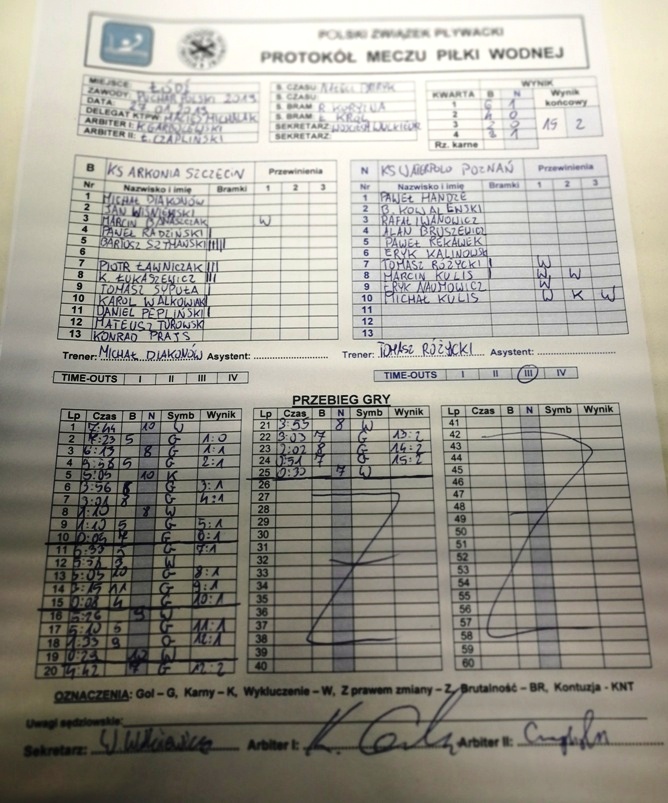 POLSKI ZWIĄZEK PŁYWACKI
PROTOKÓŁ MECZU PIŁKI WODNEJ
MIEJSCE: ŁÓDŹ
ZAWODY: PUCHAR POLSKI 2019
DATA:
DELEGAT KTPW MACIEJ MICHALAK
ARBITER I:
ARBITER II: Ł. CZAPLIŃSKI
S. CZASU:
S. CZASU:
S. BRAM
S. BRAM Ł. KRÓL
SEKRETARZ:
SEKRETARZ:
WYNIK
KWARTA B N Wynik końcowy
1 6 1
2 4 0
3 2 0
4 3 1
15 2
Rz. karne
B KS ARKONIA SZCZECIN Przewinienia
Nr Nazwisko i imię Bramki 1 2 3
1 MICHAŁ DIAKONÓW
2 JAN WIŚNIEWSKI
3 MARCIN BANASZCIAK W
4 PAWEŁ RADZIŃSKI I
5 BARTOSZ SZYMAŃSKI IIIII
6
7 PIOTR ŁAWNICZAK III
8 K. ŁUKASZEWICZ III
9 TOMASZ SYPUŁA I
10 KAROL WALKOWIAK I
11 DANIEL PEPLIŃSKI I
12 MATEUSZ TUROWSKI
13 KONRAD PRATS
N KS WATERPOLO POZNAŃ Przewinienia
Nr Nazwisko i imię Bramki 1 2 3
1 PAWEŁ HANDZE
2 B. KOWALEWSKI
3 RAFAŁ IWANOWICZ
4 ALAN BRUSZEWICZ
5 PAWEŁ REKAWEK
6 ERYK KALINOWSKI
7 TOMASZ RÓŻYCKI I W
8 MARCIN KULIS I W W
9 ERYK NAUMOWICZ W
10 MICHAŁ KULIS W K W
11
12
13
Trener: MICHAŁ DIAKONÓW Asystent:
Trener: TOMASZ RÓŻYCKI Asystent:
TIME-OUTS I II III IV
TIME-OUTS I II III IV
PRZEBIEG GRY
Lp Czas B N Symb Wynik
1 7:44 10 W
2 7:23 5 G 1:0
3 6:13 8 G 1:1
4 5:58 5 G 2:1
5 5:05 10 K
6 3:56 8 G 3:1
7 3:01 8 G 4:1
8 1:10 8 W
9 1:10 5 G 5:1
10 0:05 7 G 6:1
11 5 G 7:1
12 3 W
13 5:05 10 G 8:1
14 3:15 11 G 9:1
15 0:01 4 G 10:1
16 5:26 9 W
17 5:10 5 G 11:1
18 1:33 9 G 12:1
19 0:29 10 W
20 5:42 7 G 12:2
Lp Czas B N Symb Wynik
21 3:55 8 W
22 3:03 7 G 13:2
23 2:02 8 G 14:2
24 7 G 15:2
25 0:30 7 W
26
27
28
29
30
31
32
33
34
35
36
37
38
39
40
Lp Czas B N Symb Wynik
41
42
43
44
45
46
47
48
49
50
51
52
53
54
55
56
57
58
59
60
OZNACZENIA: Gol – G, Karny – K, Wykluczenie – W, Z prawem zmiany – Z, Brutalność – BR, Kontuzja - KNT
Uwagi sędziowskie:
Sekretarz: Arbiter I: Arbiter II: